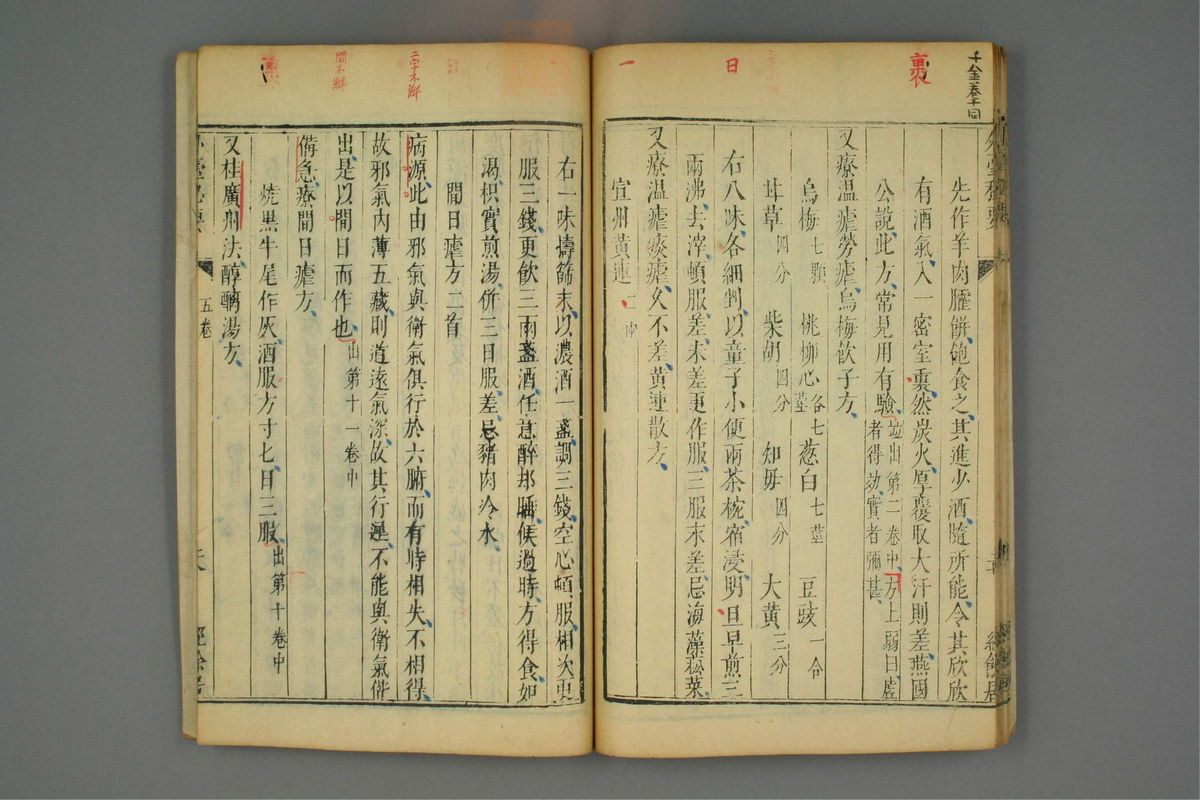 千金卷十四
裹
日
一
先作羊肉臛餅飽食之其進少酒隨所能令其欣欣
有酒氣入一密室裹然炭火厚覆取大汗則差燕國
公說此方常見用有驗並出第二卷中方上弱日虛
者得効實者彌甚
又療温瘧勞瘧烏梅飲子方
烏梅七顆 桃柳心各七莖 葱白七莖 豆豉一合
甘草四分 柴胡四分 知母四分 大黃三分
右八味各細剉以童子小便兩茶椀宿浸明旦早煎三
兩沸去滓頓服差未差更作服三服末差忌海藻菘菜
又療温瘧痰瘧久不差黃連散方
宜州黃連一兩
右一味擣篩末以濃酒一盞調三錢空心頓服相次更
服三錢更飲三兩盞酒任意醉却睡候過時方得食如
渴枳實煎湯併三日服差忌豬肉冷水
間日瘧方二首
病源此由邪氣與衛氣俱行於六腑而有時相失不相得
故邪氣內薄五藏則道遠氣深故其行遲不能與衛氣併
出是以間日而作也出第十一卷中
備急療間日瘧方
燒黑牛尾作灰酒服方寸匕日三服出第十卷中
又桂廣州法醇醨湯方
外臺秘要
五卷
經餘居